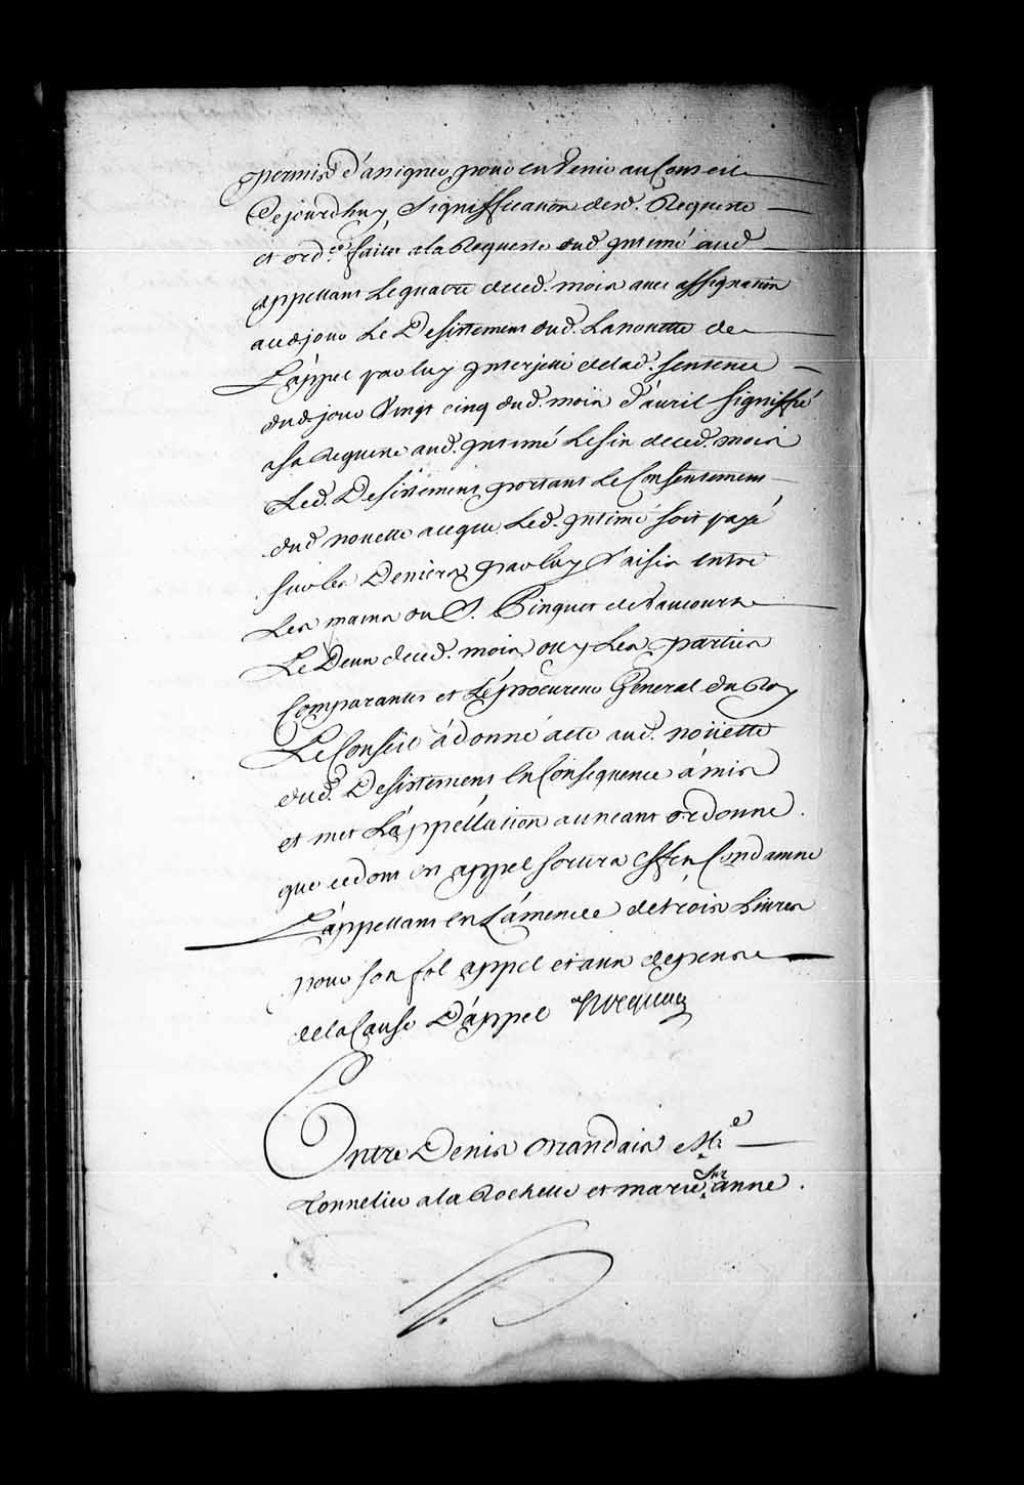 permis d'assigner pour en venir au Conseil
Cejourdhuy, Signiffication desd. Requeste
et ord.ce faite ala Requeste dud. Intimé aud.
appellant Le quatre deced. mois avec assignation
aud. jour Le Desistement dud. Lanouette de
L'appel par luy Interjetté delad. Sentence
dud. jour Vingt cinq dud. mois d'avril Signiffié
asa Requeste aud. Intimé Le Six deced. mois
Led. Desistement portant Le Consentement
dud. nouette aceque Led. Intimé soit payé
sur les Deniers par luy Saisis entre
Les mains du S. Pinguet de Vaucourt
Le Deux deced. mois, ouy Les parties
Comparantes et Le procureur General du Roy
Le Conseil à donné acte aud. noüette
dud. Desistement En Consequence à mis
et met L'appéllation au neant ordonne
que ce dont est appel sortira effet, Condamne
L'appellant en L'amende de trois Livres
pour son fol appel et aux depens
dela Cause D'appel
Entre Denis Mandais M.e
Tonnelier ala Rochelle et marie Sus. anne